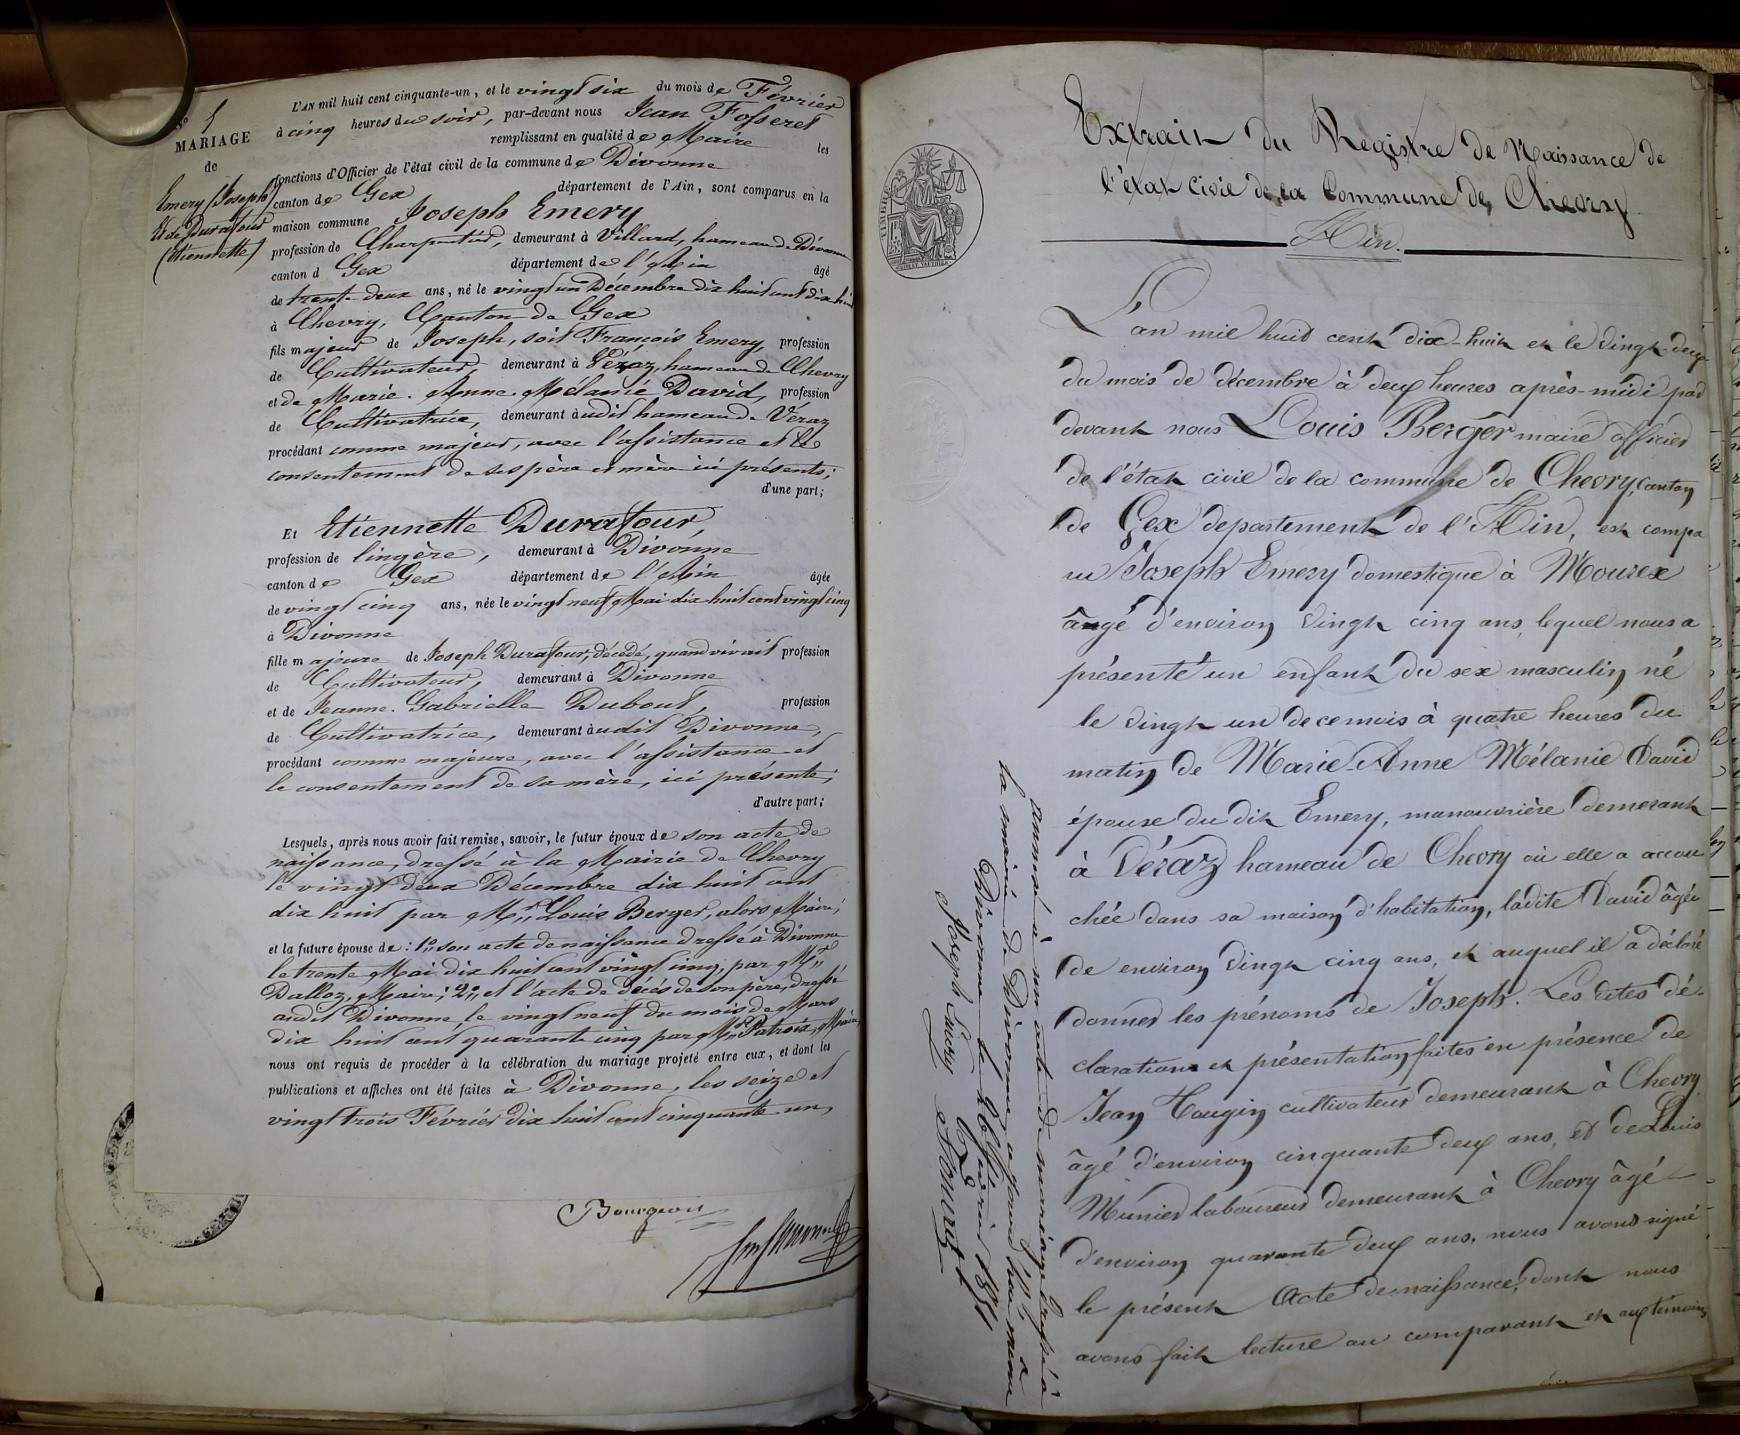 N.o 5
MARIAGE
de
Emery (Joseph)
Et de Durafour
(Etiennette)
L'AN mil huit cent cinquante-un, et le vingt six du mois de Février
à cinq heures du soir, par-devant nous Jean Fosseret
remplissant en qualité de Maire les
fonctions d'Officier de l'état civil de la commune de Divonne
canton de Gex département de l'Ain, sont comparus en la
maison commune Joseph Emery
profession de Charpentier, demeurant à Villard, hameau de Divonne
canton d Gex département de l'Ain âgé
de trente-deux ans, né le vingt un Décembre dix huit cent dix huit
à Chevry, Canton de Gex
fils majeur de Joseph, soit François Emery, profession
de Cultivateur, demeurant à Véraz, hameau de Chevry
et de Marie-Anne-Mélanie David, profession
de Cultivatrice, demeurant audit hameau de Véraz
procédant comme majeur, avec l'assistance et le
consentement de ses père et mère ici présents;
d'une part;
Et Etiennette Durafour,
profession de lingère, demeurant à Divonne
canton de Gex département de l'Ain âgée
de vingt cinq ans, née le vingt neuf Mai dix huit cent vingt cinq
à Divonne
fille majeure de Joseph Durafour, décédé, quand vivait profession
de Cultivateur, demeurant à Divonne
et de Jeanne-Gabrielle Dubout, profession
de Cultivatrice, demeurant audit Divonne,
procédant comme majeure, avec l'assistance et
le consentement de sa mère, ici présente;
d'autre part;
Lesquels, après nous avoir fait remise, savoir, le futur époux de son acte de
naissance, dressé à la Mairie de Chevry
le vingt deux Décembre dix huit cent
dix huit par Mr. Louis Berger, alors Maire;
et la future épouse de: 1.o son acte de naissance dressé à Divonne
le trente Mai dix huit cent vingt cinq, par Mr.
Dalloz, Maire; 2.o et l'acte de décès de son père, dressé
audit Divonne, le vingt neuf du mois de Mars
dix huit cent quarante cinq par Mr. Patroix, Maire,
nous ont requis de procéder à la célébration du mariage projeté entre eux, et dont les
publications et affiches ont été faites à Divonne, les seize et
vingt trois Février dix huit cent cinquante un,
Bourgeois
Extrait du Registre de Naissance de
l'état Civil de la Commune de Chevry
Ain.
L'an mil huit cent dix-huit et le vingt-deux
du mois de décembre à deux heures après-midi par
devant nous Louis Berger maire officier
de l'état civil de la commune de Chevry, canton
de Gex departement de l'Ain, est compa
ru Joseph Emery domestique à Mourex
âgé d'environ vingt cinq ans, lequel nous a
présenté un enfant du sex masculin né
le vingt un de ce mois à quatre heures du
matin de Marie-Anne Mélanie David
épouse du dit Emery, manouvrière demeurant
à Véraz hameau de Chevry où elle a accou
chée dans sa maison d'habitation, ladite David âgée
de environ vingt cinq ans, et auquel il a déclaré
donner les prénoms de Joseph. Les dites dé-
clarations et présentation faites en présence de
Jean Hougin cultivateur demeurant à Chevry
âgé d'environ cinquante deux ans, et de Louis
Munier laboureur demeurant à Chevry âgé
d'environ quarante deux ans, nous avons signé
le présent Acte de naissance, dont nous
avons fait lecture au comparant et aux témoins
annexé à un acte de mariage dressé à
la mairie de Divonne aujourd'hui
Divonne le 26 février 1851
Joseph Emery Fosseret